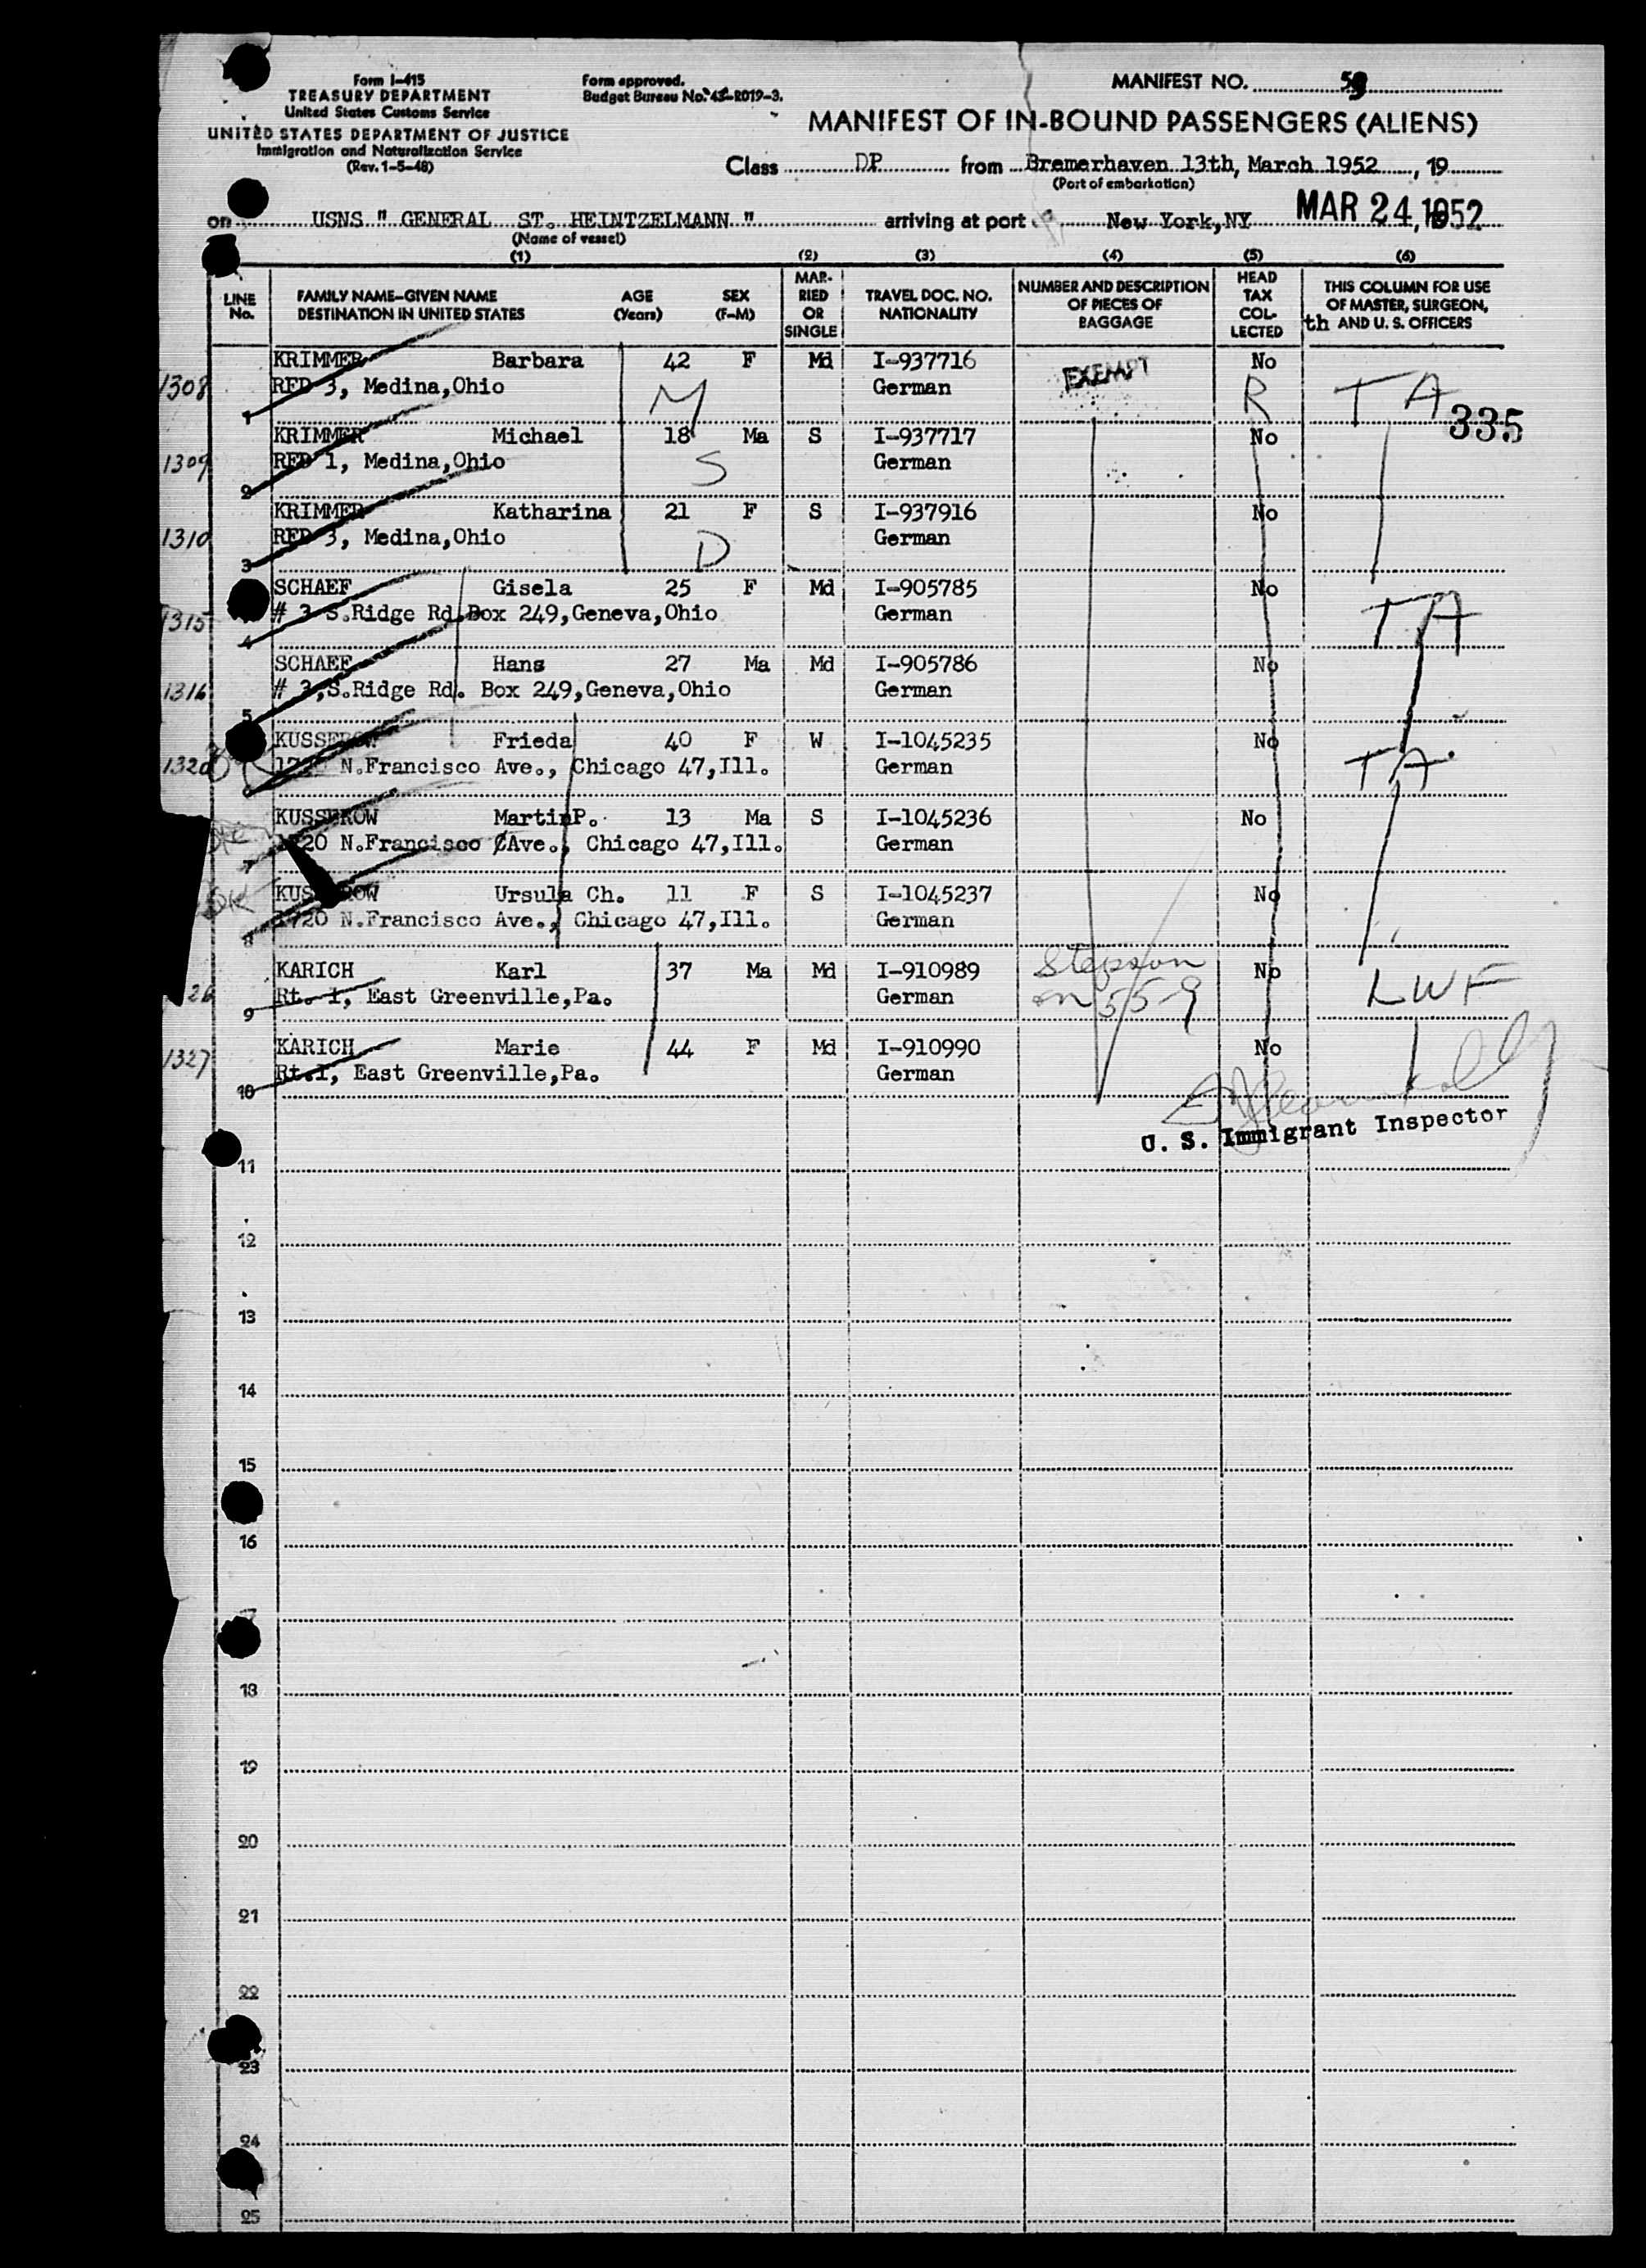 Form I-415
TREASURY DEPARTMENT
United States Customs Service
UNITED STATES DEPARTMENT OF JUSTICE
Immigration and Naturalization Service
(Rev. 1-5-48)
Form approved.
Budget Bureau No. 43-R019-3.
MANIFEST NO.
MANIFEST OF IN-BOUND PASSENGERS (ALIENS)
Class DP from Bremerhaven 13th, March 1952, 19
(Port of embarkation)
on USNS " GENERAL ST. HEINTZELMANN " arriving at port New York, NY MAR 24, 1952
(Name of vessel)
(1) (2) (3) (4) (5) (6)
LINE No. FAMILY NAME—GIVEN NAME DESTINATION IN UNITED STATES AGE (Years) SEX (F-M) MARRIED OR SINGLE TRAVEL DOC. NO. NATIONALITY NUMBER AND DESCRIPTION OF PIECES OF BAGGAGE HEAD TAX COLLECTED THIS COLUMN FOR USE OF MASTER, SURGEON, th AND U. S. OFFICERS
KRIMMER Barbara 42 F Md I-937716 EXEMPT No
1308 1 RFD 3, Medina,Ohio M German R TA 335
KRIMMER Michael 18 Ma S I-937717 No
1309 2 RFD 1, Medina,Ohio S German
KRIMMER Katharina 21 F S I-937916 No
1310 3 RFD 3, Medina,Ohio D German
SCHAEF Gisela 25 F Md I-905785 No
1315 4 # 3 S.Ridge Rd.Box 249,Geneva,Ohio German TA
SCHAEF Hans 27 Ma Md I-905786 No
1316 5 # 3,S.Ridge Rd. Box 249,Geneva,Ohio German
KUSSEROW Frieda 40 F W I-1045235 No
6 1720 N.Francisco Ave., Chicago 47,Ill. German TA
KUSSEROW MartinP. 13 Ma S I-1045236 No
7 1720 N.Francisco Ave., Chicago 47,Ill. German
KUSSEROW Ursula Ch. 11 F S I-1045237 No
OK 8 1720 N.Francisco Ave., Chicago 47,Ill. German
KARICH Karl 37 Ma Md I-910989 Stepson No
26 9 Rt. 1, East Greenville,Pa. German on 55-9 LWF
KARICH Marie 44 F Md I-910990 No
1327 10 Rt.1, East Greenville,Pa. German
U. S. Immigrant Inspector
11
12
13
14
15
16
17
18
19
20
21
22
23
24
25